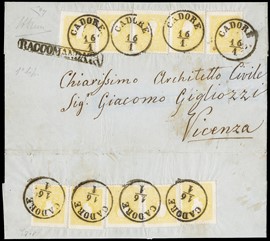 CADORE 16 1 CADORE 16 1 CADORE 16 1 CADORE 16 1
Chiarissimo Architetto Civile
Sig.r Giacomo Gigliozzi
Vicenza
CADORE 16 1 CADORE 16 1 CADORE 16 1 CADORE 16 1